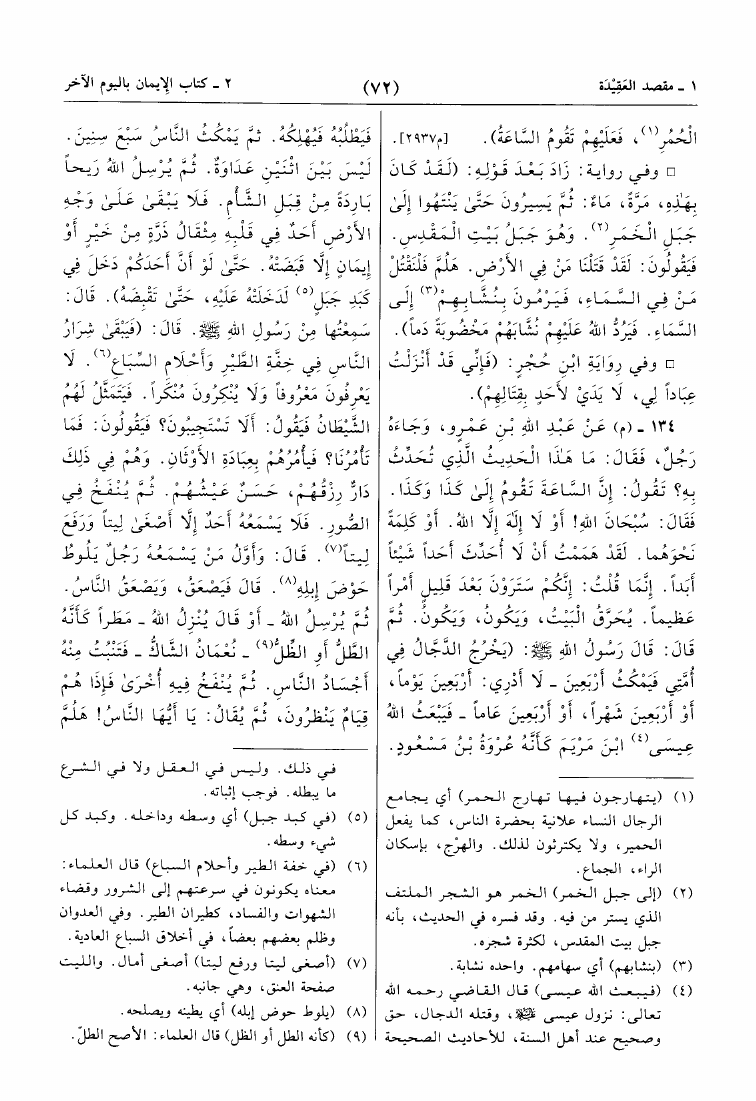 ١ ـ مقصد العَقِيْدَة
(٧٢)
٢ ـ كتاب الإيمان باليوم الآخر
الْحُمُرِ(١)، فَعَلَيْهِمْ تَقُومُ السَّاعَةُ). [م٢٩٣٧].
□ وفي رواية: زَادَ بَعْدَ قَوْلِهِ: (لَقَدْ كَانَ
بِهٰذِهِ، مَرَّةً، مَاءٌ: ثُمَّ يَسِيرُونَ حَتَّىٰ يَنْتَهُوا إِلَىٰ
جَبَلِ الْخَمَرِ(٢). وَهُوَ جَبَلُ بَيْتِ الْمَقْدِسِ.
فَيَقُولُونَ: لَقَدْ قَتَلْنَا مَنْ فِي الأَرْضِ. هَلُمَّ فَلْنَقْتُلْ
مَنْ فِي السَّمَاءِ، فَيَرْمُونَ بِنُشَّابِهِمْ(٣) إِلَى
السَّمَاءِ. فَيَرُدُّ اللهُ عَلَيْهِمْ نُشَّابَهُمْ مَخْضُوبَةً دَماً).
□ وفي رِوَايَةِ ابْنِ حُجْرٍ: (فَإِنِّي قَدْ أَنْزَلْتُ
عِبَاداً لِي، لَا يَدَيْ لأَحَدٍ بِقِتَالِهِمْ).
١٣٤ ـ (م) عَنْ عَبْدِ اللهِ بْنِ عَمْرٍو، وَجَاءَهُ
رَجُلٌ، فَقَالَ: مَا هٰذَا الْحَدِيثُ الَّذِي تُحَدِّثُ
بِهِ؟ تَقُولُ: إِنَّ السَّاعَةَ تَقُومُ إِلَىٰ كَذَا وَكَذَا.
فَقَالَ: سُبْحَانَ اللهِ! أَوْ لَا إِلٰهَ إِلَّا اللهُ. أَوْ كَلِمَةً
نَحْوَهُما. لَقَدْ هَمَمْتُ أَنْ لَا أُحَدِّثَ أَحَداً شَيْئاً
أَبَداً. إِنَّمَا قُلْتُ: إِنَّكُمْ سَتَرَوْنَ بَعْدَ قَلِيلٍ أَمْراً
عَظِيماً. يُحَرَّقُ الْبَيْتُ، وَيَكُونُ، وَيَكُونُ. ثُمَّ
قَالَ: قَالَ رَسُولُ اللهِ ﷺ: (يَخْرُجُ الدَّجَّالُ فِي
أُمَّتِي فَيَمْكُثُ أَرْبَعِينَ ـ لَا أَدْرِي: أَرْبَعِينَ يَوْماً،
أَوْ أَرْبَعِينَ شَهْراً، أَوْ أَرْبَعِينَ عَاماً ـ فَيَبْعَثُ اللهُ
عِيسَى(٤) ابْنَ مَرْيَمَ كَأَنَّهُ عُرْوَةُ بْنُ مَسْعُودٍ.
(١) (يتهارجون فيها تهارج الحمر) أي يجامع
الرجال النساء علانية بحضرة الناس، كما يفعل
الحمير، ولا يكترثون لذلك. والهرْج، بإسكان
الراء، الجماع.
(٢) (إلى جبل الخمر) الخمر هو الشجر الملتف
الذي يستر من فيه. وقد فسره في الحديث، بأنه
جبل بيت المقدس، لكثرة شجره.
(٣) (بنشابهم) أي سهامهم. واحده نشابة.
(٤) (فيبعث الله عيسى) قال القاضي رحمه الله
تعالى: نزول عيسى ﷺ، وقتله الدجال، حق
وصحيح عند أهل السنة، للأحاديث الصحيحة
فَيَطْلُبُهُ فَيُهْلِكُهُ. ثمَّ يَمْكُثُ النَّاسُ سَبْعَ سِنِينَ.
لَيْسَ بَيْنَ اثْنَيْنِ عَدَاوَةٌ. ثُمَّ يُرْسِلُ اللهُ رِيحاً
بَارِدَةً مِنْ قِبَلِ الشَّأْمِ. فَلَا يَبْقَى عَلَىٰ وَجْهِ
الأَرْضِ أَحَدٌ فِي قَلْبِهِ مِثْقَالُ ذَرَّةٍ مِنْ خَيْرٍ أَوْ
إِيمَانٍ إِلَّا قَبَضَتْهُ. حَتَّىٰ لَوْ أَنَّ أَحَدَكُمْ دَخَلَ فِي
كَبَدِ جَبَلٍ(٥) لَدَخَلَتْهُ عَلَيْهِ، حَتَّىٰ تَقْبِضَهُ). قَالَ:
سَمِعْتُهَا مِنْ رَسُولِ اللهِ ﷺ. قَالَ: (فَيَبْقَىٰ شِرَارُ
النَّاسِ فِي خِفَّةِ الطَّيْرِ وَأَحْلَامِ السِّبَاعِ(٦). لَا
يَعْرِفُونَ مَعْرُوفاً وَلَا يُنْكِرُونَ مُنْكَراً. فَيَتَمَثَّلُ لَهُمُ
الشَّيْطَانُ فَيَقُولُ: أَلَا تَسْتَجِيبُونَ؟ فَيَقُولُونَ: فَمَا
تَأْمُرُنَا؟ فَيَأْمُرُهُمْ بِعِبَادَةِ الأَوْثَانِ. وَهُمْ فِي ذٰلِكَ
دَارٌّ رِزْقُهُمْ، حَسَنٌ عَيْشُهُمْ. ثُمَّ يُنْفَخُ فِي
الصُّورِ. فَلَا يَسْمَعُهُ أَحَدٌ إِلَّا أَصْغَىٰ لِيتاً وَرَفَعَ
لِيتاً(٧). قَالَ: وَأَوَّلُ مَنْ يَسْمَعُهُ رَجُلٌ يَلُوطُ
حَوْضَ إِبِلِهِ(٨). قَالَ فَيَصْعَقُ، وَيَصْعَقُ النَّاسُ.
ثُمَّ يُرْسِلُ اللهُ ـ أَوْ قَالَ يُنْزِلُ اللهُ ـ مَطَراً كَأَنَّهُ
الطَّلُّ أَوِ الظِّلُّ(٩) ـ نُعْمَانُ الشَّاكُّ ـ فَتَنْبُتُ مِنْهُ
أَجْسَادُ النَّاسِ. ثُمَّ يُنْفَخُ فِيهِ أُخْرَىٰ فَإِذَا هُمْ
قِيَامٌ يَنْظُرُونَ، ثُمَّ يُقَالُ: يَا أَيُّهَا النَّاسُ! هَلُمَّ
في ذلك. وليس في العقل ولا في الشرع
ما يبطله. فوجب إثباته.
(٥) (في كبد جبل) أي وسطه وداخله. وكبد كل
شيء وسطه.
(٦) (في خفة الطير وأحلام السباع) قال العلماء:
معناه يكونون في سرعتهم إلى الشرور وقضاء
الشهوات والفساد، كطيران الطير. وفي العدوان
وظلم بعضهم بعضاً، في أخلاق السباع العادية.
(٧) (أصغى ليتا ورفع ليتا) أصغى أمال. والليت
صفحة العنق، وهي جانبه.
(٨) (يلوط حوض إبله) أي يطينه ويصلحه.
(٩) (كأنه الطل أو الظل) قال العلماء: الأصح الطلّ.